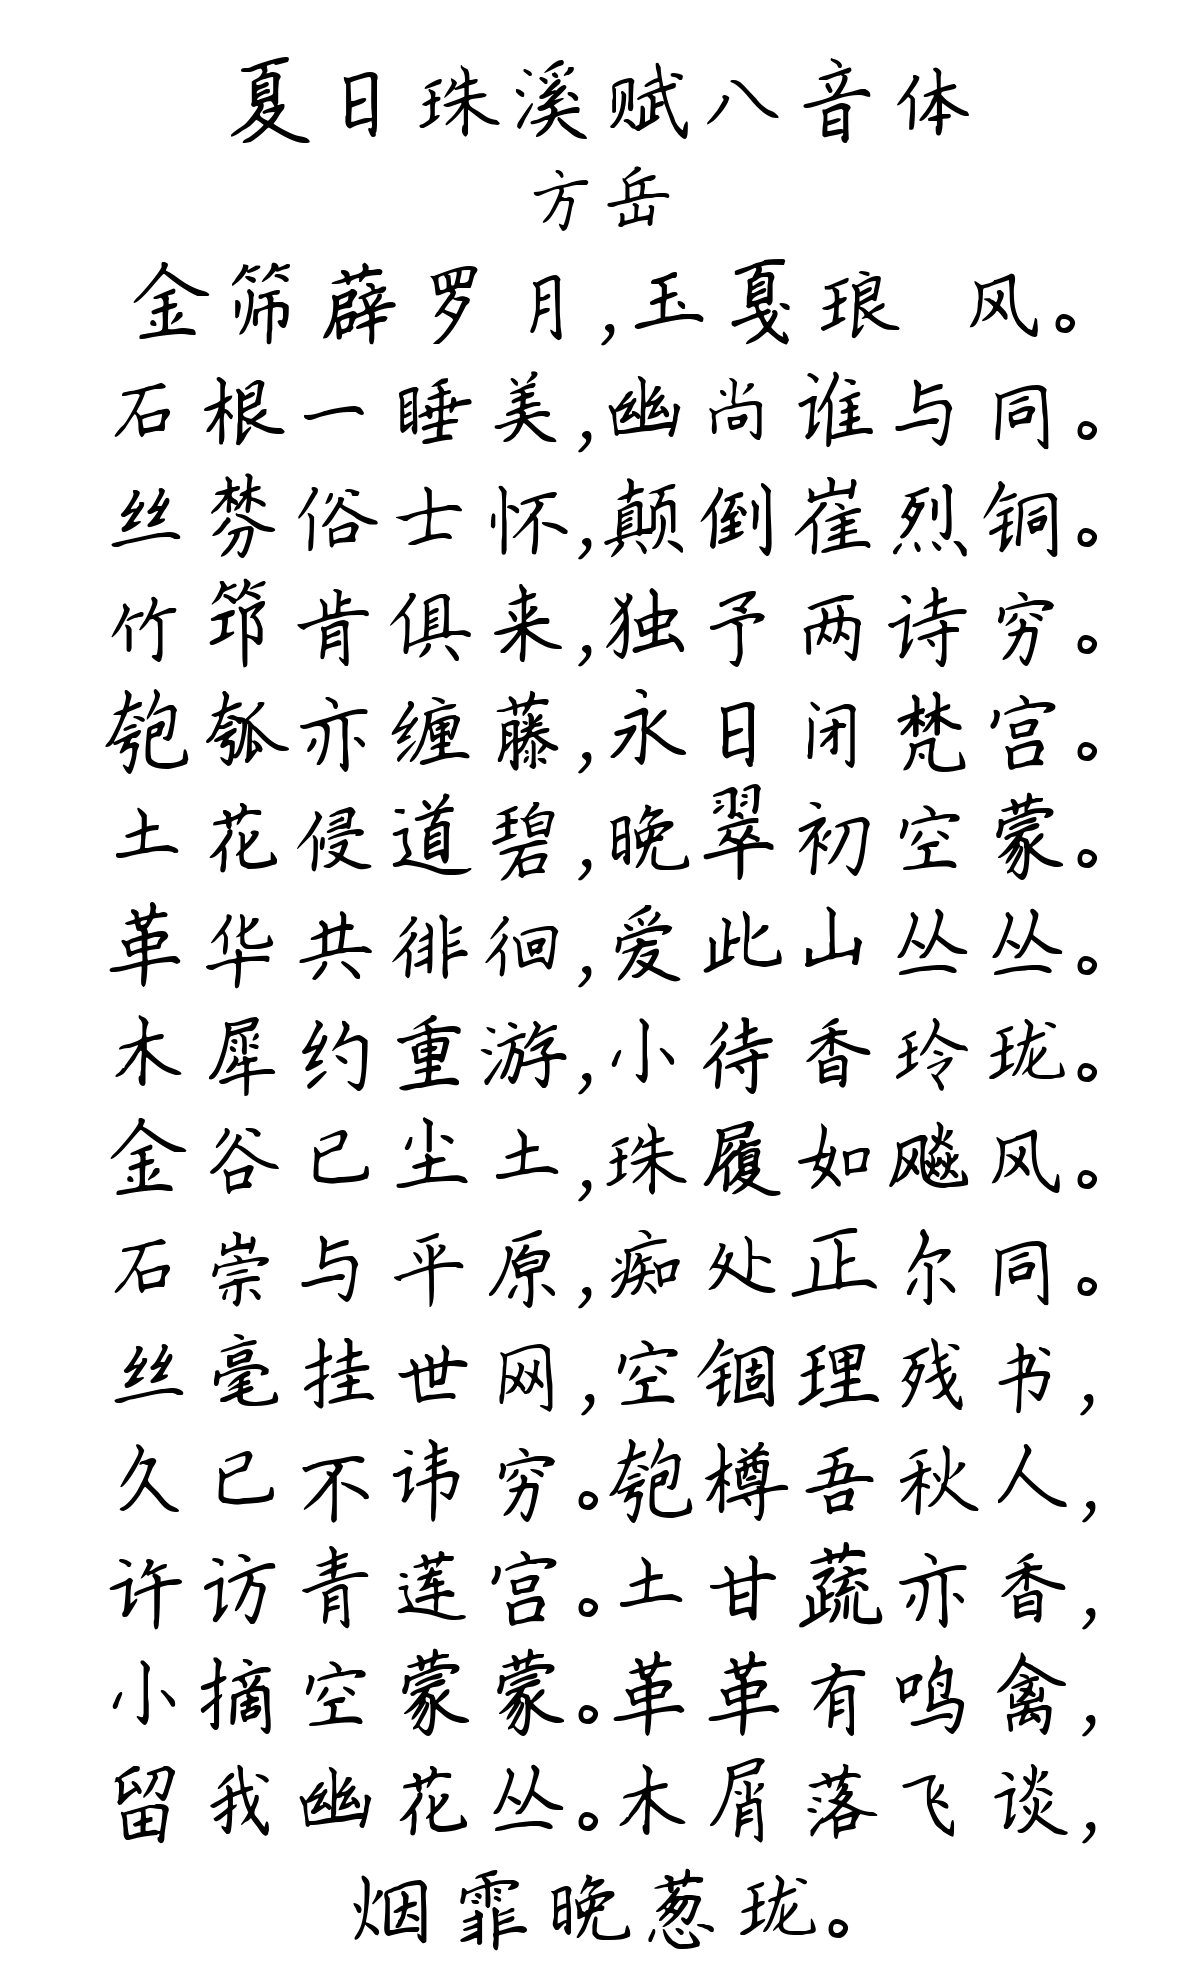 夏日珠溪赋八音体
方岳
金筛薜罗月,玉戛琅 风。
石根一睡美,幽尚谁与同。
丝棼俗士怀,颠倒崔烈铜。
竹筇肯俱来,独予两诗穷。
匏瓠亦缠藤,永日闭梵宫。
土花侵道碧,晚翠初空蒙。
革华共徘徊,爱此山丛丛。
木犀约重游,小待香玲珑。
金谷已尘土,珠履如飚风。
石崇与平原,痴处正尔同。
丝毫挂世网,空锢理残书,
久已不讳穷。匏樽吾秋人,
许访青莲宫。土甘蔬亦香,
小摘空蒙蒙。革革有鸣禽,
留我幽花丛。木屑落飞谈,
烟霏晚葱珑。